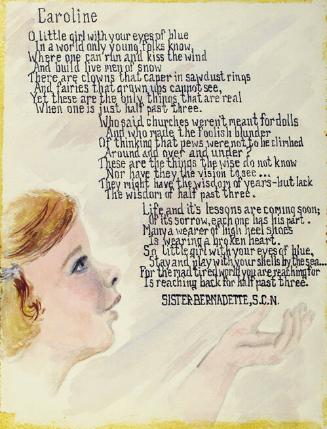 Caroline
O little girl with your eyes of blue
In a world only young folks know,
Where one can run and kiss the wind
And build live men of snow
There are clowns that caper in sawdust rings
And fairies that grown ups cannot see,
Yet these are the only things that are real
When one is just half past three.
Who said churches weren't meant for dolls
And who made the foolish blunder
Of thinking that pews were not to be climbed
Around and over and under?
These are things the wise do not know
Nor have they the vision to see...
They might have the wisdom of years-but lack
The wisdom of half past three.
Life and it's lessons are coming soon;
Of its sorrow, each one has his part.
Many a wearer of high heel shoes
Is wearing a broken heart.
So little girl with your eyes of blue,
Stay and play with your shells by the sea...
For the mad tired world you are reaching for
Is reaching back for half past three.
SISTER BERNADETTE, S.C.N.